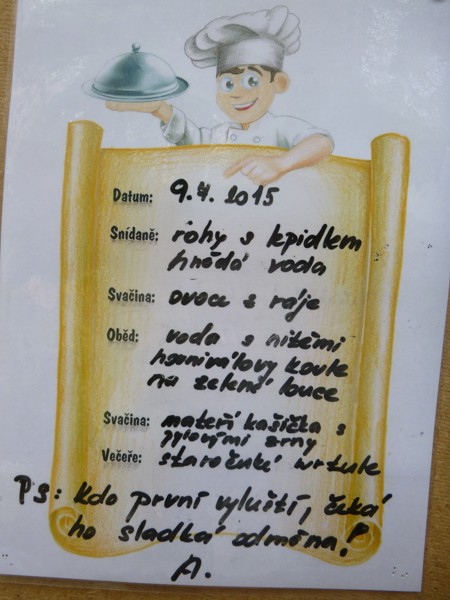 Datum: 9.4.2015
Snídaně: rohy s lepidlem
hnědá voda
Svačina: ovoce z ráje
Oběd: voda s nitěmi
na zelené louce
Svačina: mateří kašička s
pylovými zrny
Večeře: staročeské wrtule
PS: Kdo první vyluští, čeká
ho sladká odměna!
A.